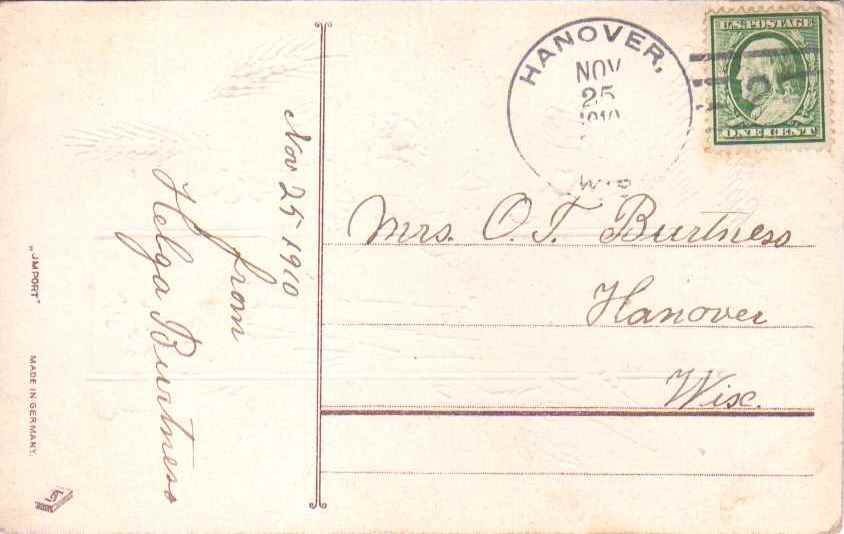 Nov 25 1910
from
Helga Burtness
"IMPORT"
MADE IN GERMANY.
HANOVER,
NOV
25
1910
WIS
U.S. POSTAGE
ONE CENT
Mrs. O. T. Burtness
Hanover
Wisc.